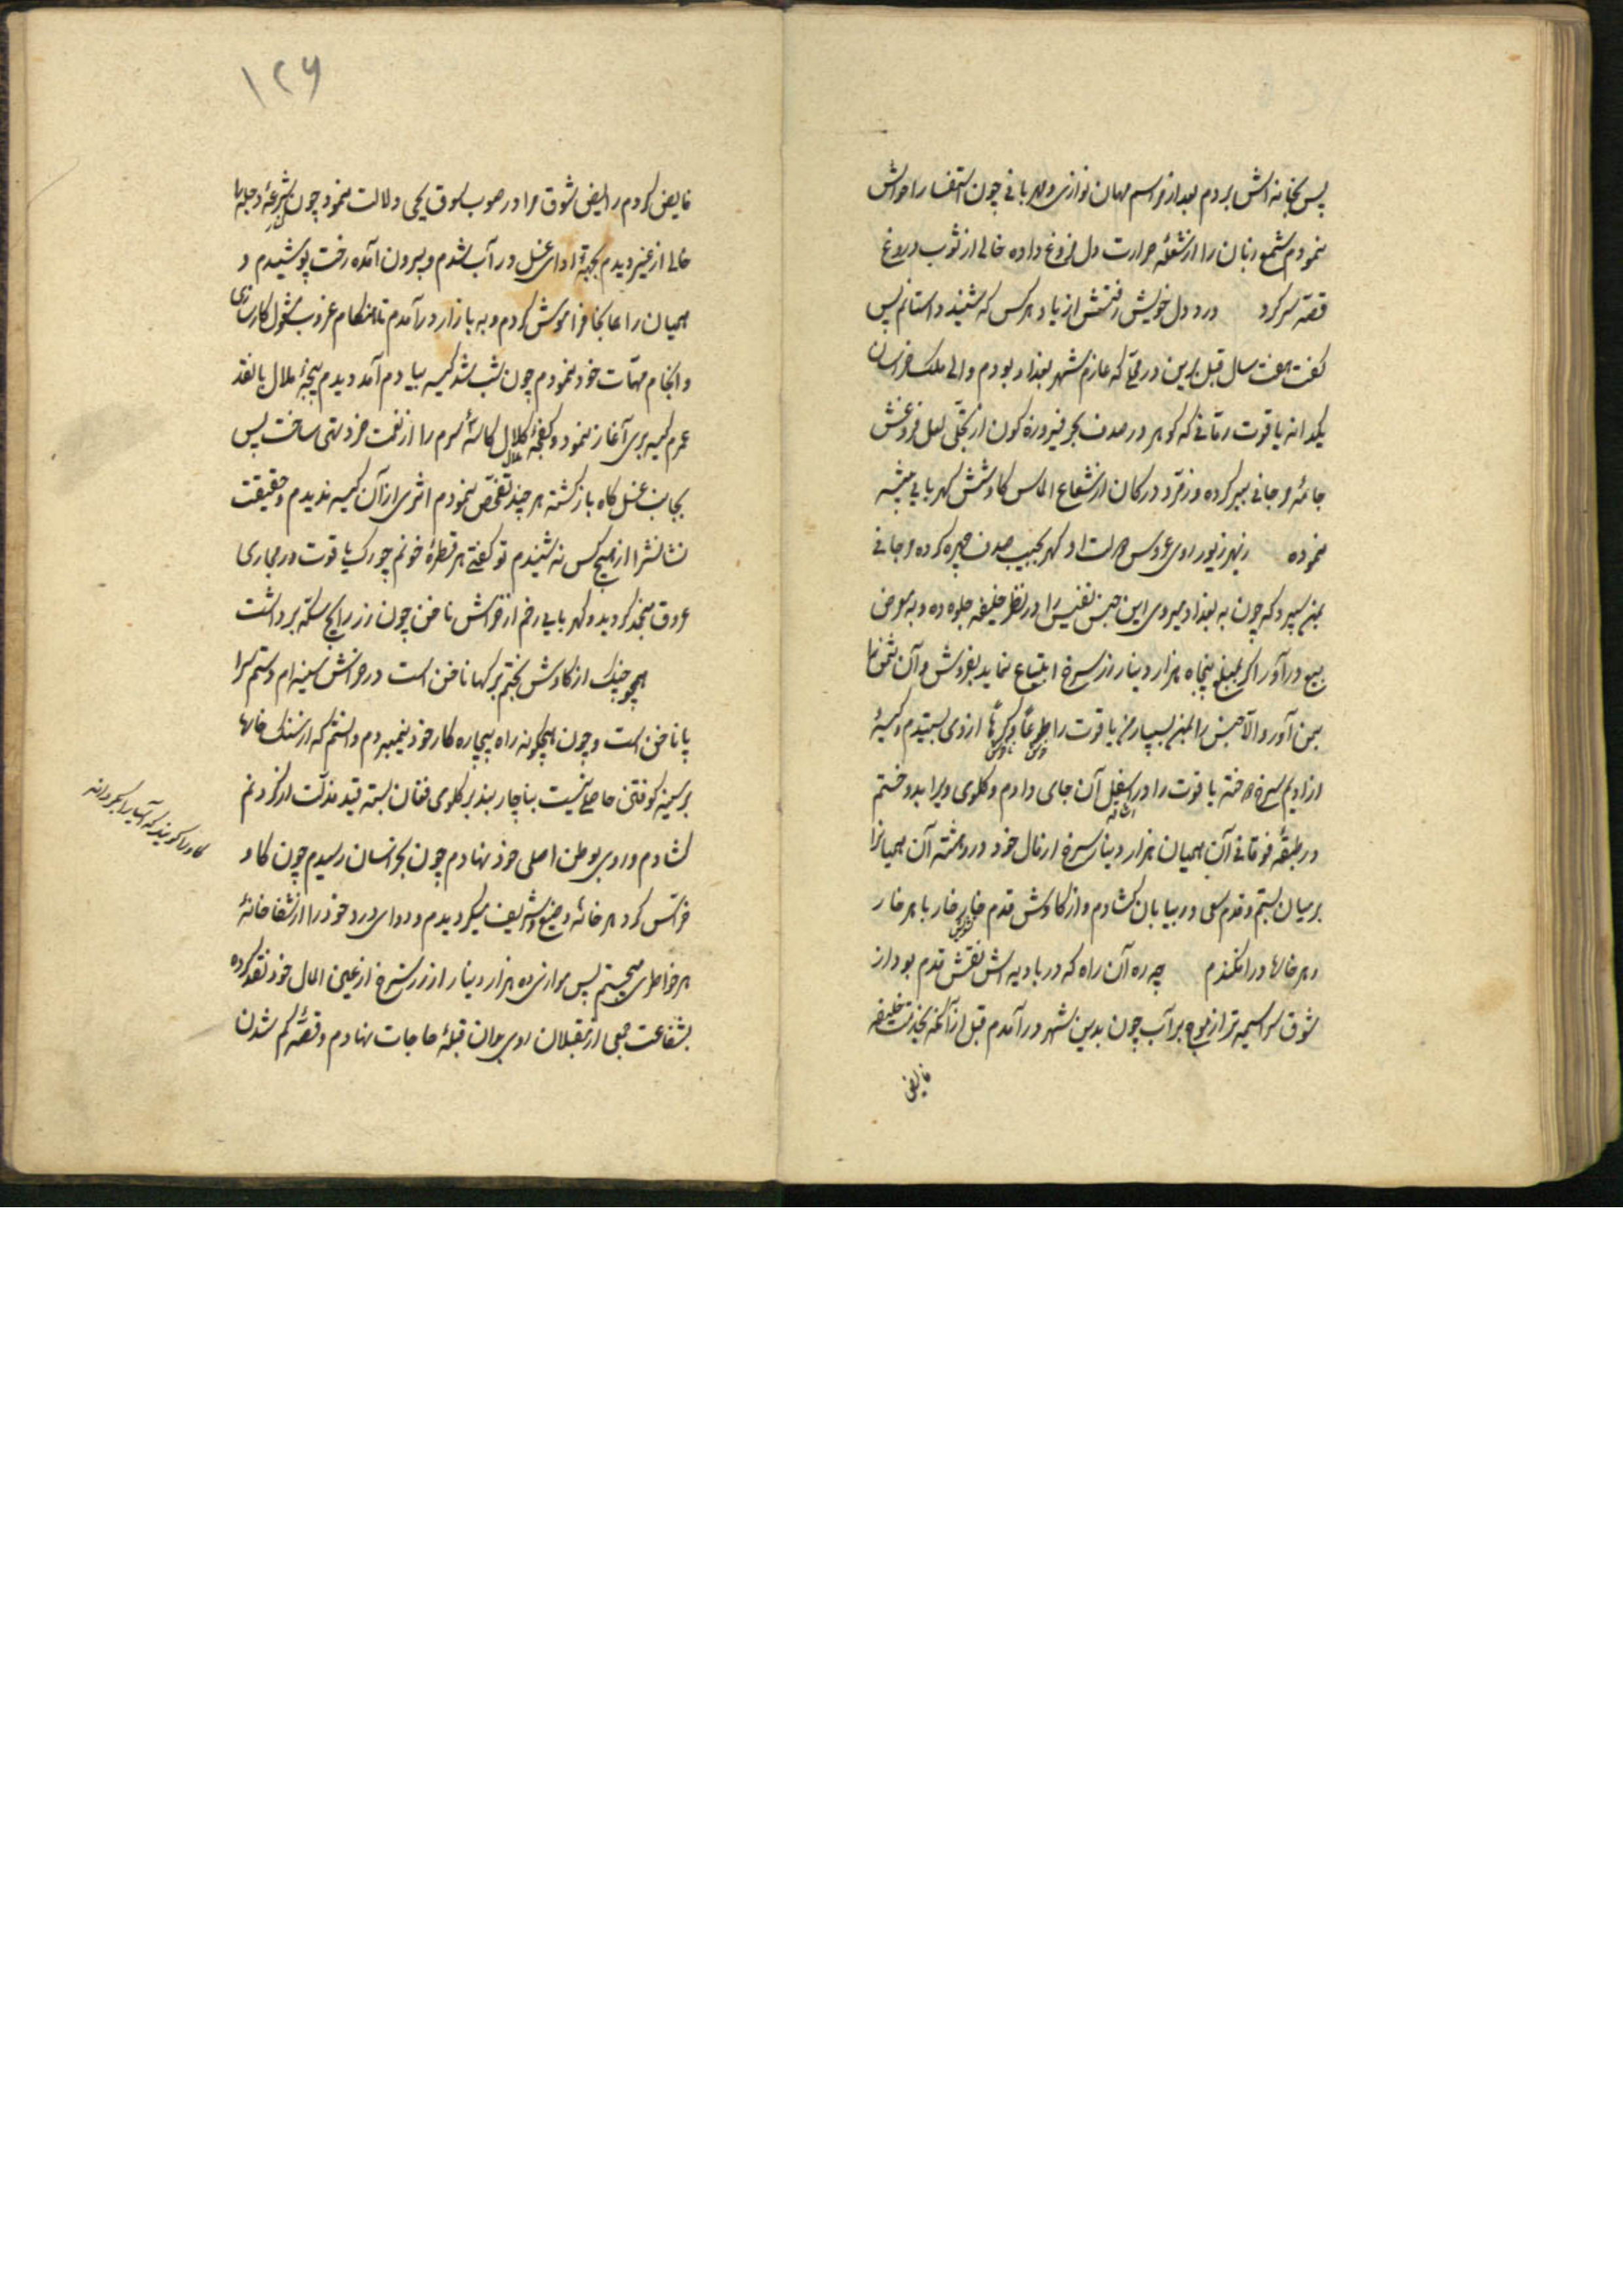 پس بخانه اش بردم بعد از مراسم مهمان نوازی و مهربانی چون استفسار احوالش
نمودم شمع زبان را از شعلهٔ حرارت دل فروغ داده خالی از شوب دروغ
قصّه سر کرد درد دل خویش رفتش از یاد هر کس که شنید داستانم پس
کفت هفت سال قبل برین در وقتی که عازم شهر بغداد بودم والی ملک خراسان
یکدانه یاقوت رمّانی که کوهر در صدف بحر فیروزه کون از تجلّی لعل فروغش
جامهٔ مرجانی ببر کرده و زمرّد در کان از شعاع الماس کاوشش کهربایی پیشه
نموده زیور روی عروس دولت او کهر بجیب صدف چهره کرده مرجانی
بمن سپرد که چون به بغداد میروی این جنس نفیس را در نظر خلیفه جلوه ده و به معرض
بیع درآور اکر بمبلغ پنجاه هزار دینار زر سرخ ابتیاع نماید بفروش و آن ثمن را
بمن آور و الّا جنس را بمن بسپار من یاقوت را طوعاً و کرهاً از وی بستیدم و کیسهٔ
از ادیم سرخ دوخته یاقوت را در اسفل آن جای دادم و کلوی ویرا بدوختم
در طبقهٔ فوقانی آن همیان هزار دینار سرخ از مال خود در و هشته آن همیانرا
بر میان بستم و قدم سعی در بیابان کشادم و از کاوش قدم خار خار با هر خار
و هر خارها در افکندم چه ره آن راه که در بادیه اش نقش قدم بود از
شوق سراسیمه تر از موج بر آب چون بدین شهر درآمدم قبل از آنکه بخدمت خلیفه
فایض
۱۲۶
فایض کردم رایض شوق مرا در صوب سوق یحیی دلالت نمود چون شرعهٔ دجله را
خالی از غیر دیدم بجهة ادای غسل در آب شدم و بیرون آمده رخت پوشیدم و
همیان را همانجا فراموش کردم و به بازار درآمدم تا هنکام غروب مشغول کارسازی
و انجام مهمّات خود نمودم چون شب شد کیسه بیادم آمد دیدم پنجهٔ ملال با نقد
عزم کیسه بری آغاز نمود و کفچهٔ کلال کاسهٔ سرم را از نعمت خرد تهی ساخت پس
بجانب غسل کاه باز کشته هر چند تفحّص نمودم اثری از آن کیسه ندیدم و حقیقت
نشانشرا از هیچ کس نه شنیدم تو کفتی هر قطرهٔ خونم چو رک یاقوت در مجاری
عروق منجمد کردید و کهربایی رخم از خراش ناخن چون زر رایج سکّه برداشت
همچو چنک از کاوش بختم رکها ناخن است در خراش سینه ام دستم سرا
پا ناخن است و چون هیچکونه راه بچاره کار خود نمیبردم دانستم که از سنک خارا
بر سینه کوفتن حاصلی نیست بناچار بند بر کلوی فغان بسته قید مذلّت از کردنم
کشادم و روی بوطن اصلی خود نهادم چون بخراسان رسیدم چون کاو
خرّاس کرد هر خانهٔ وضیع و شریف میکردیدم و دوای درد خود را از شفاخانهٔ
هر خاطری میجستم پس موازی ده هزار دینار از زر سرخ از عین المال خود نقد کرده
بشفاعت جمعی از مقبلان روی بدان قبلهٔ حاجات نهادم و قصّهٔ کم شدن